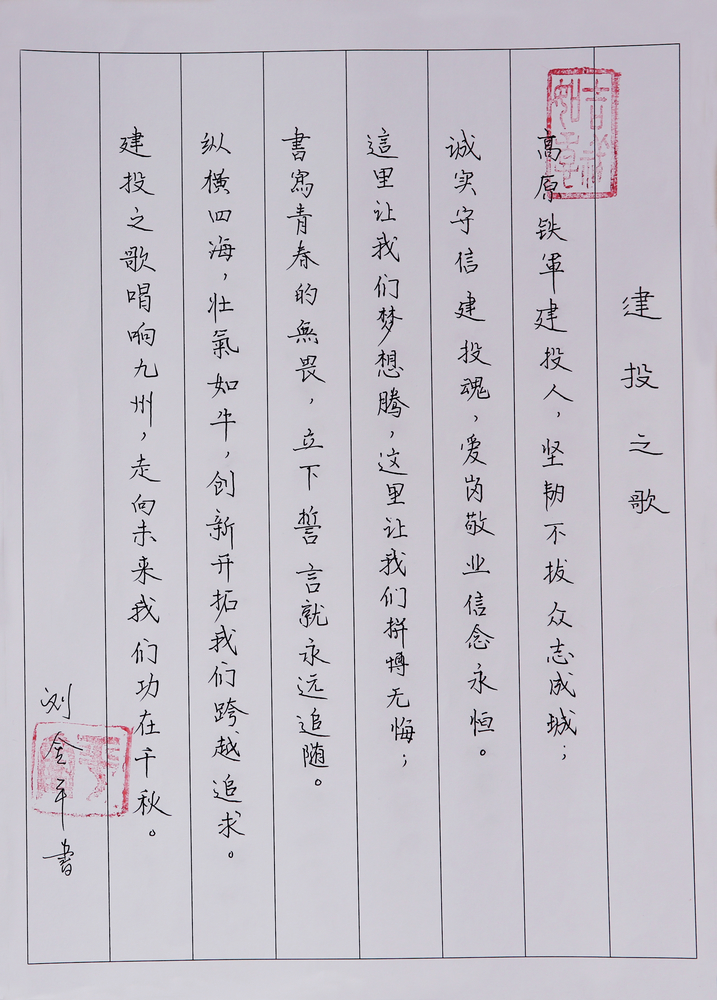 吉祥如意
建投之歌
高原铁軍建投人，坚韧不拔众志成城；
诚实守信建投魂，爱岗敬业信念永恒。
這里让我们梦想腾，这里让我们拼搏无悔；
書寫青春的無畏，立下誓言就永远追随。
纵横四海，壮氣如牛，创新开拓我们跨越追求。
建投之歌唱响九州，走向未来我们功在千秋。
刘金平書